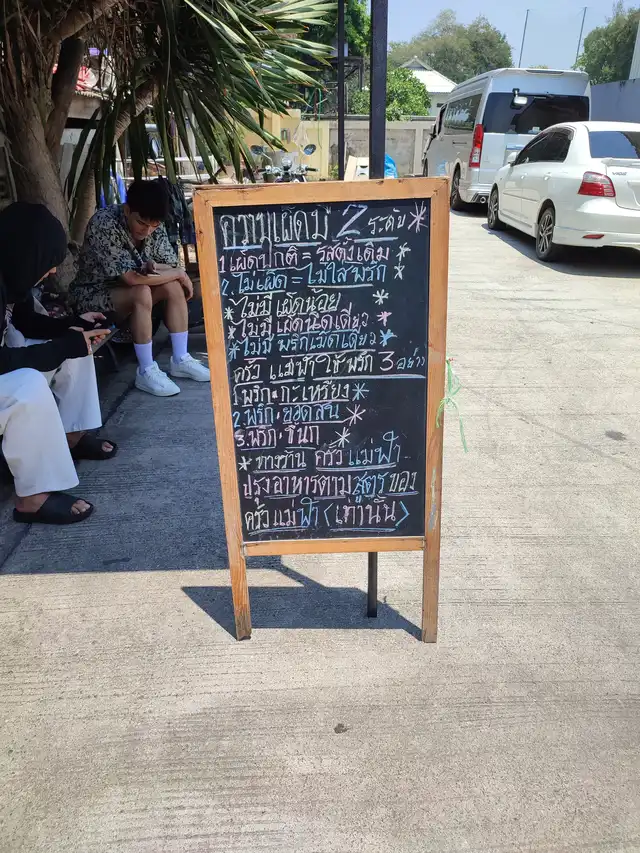 ความเผ็ดมี 2 ระดับ *
1 เผ็ดปกติ = รสดั้งเดิม
2. ไม่เผ็ด = ไม่ใส่พริก *
* ไม่มีเผ็ดน้อย *
* ไม่มีเผ็ดนิดเดียว *
* ไม่มีพริกเม็ดเดียว *
ครัวแม่ฟ้าใช้พริก 3 อย่าง
1 พริก.กะเหรี่ยง *
2. พริก.ยอดสน *
3. พริก.ชินก *
* ทางร้าน ครัวแม่ฟ้า
ปรุงอาหารตามสูตรของ
ครัวแม่ฟ้า <เท่านั้น>